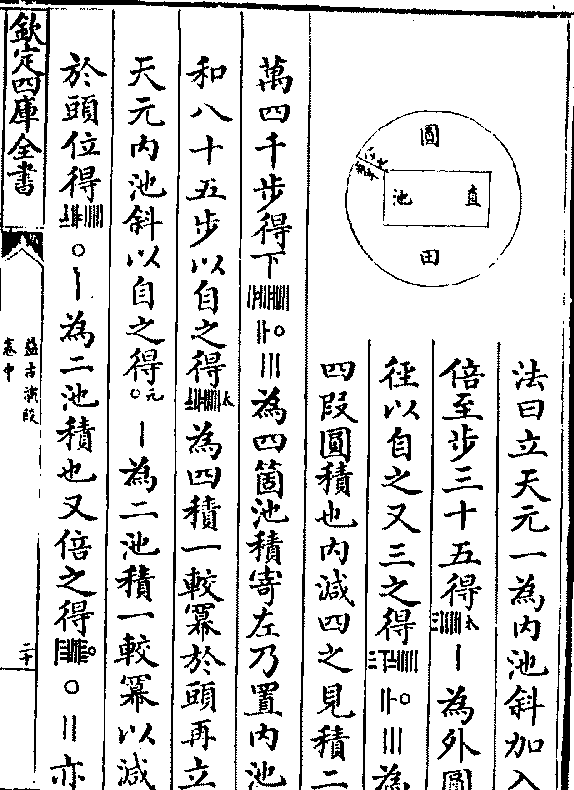 法曰立天元一為内池斜加入
倍至步三十五得 〡 為外圓
徑以自之又三之得 〢〇 〣為
四段圓積也内減四之見積二
萬四千步得下 〢〇 〣為四箇池積寄左乃置内池
和八十五步以自之得 太為四積一較冪於頭再立
天元内池斜以自之得〇元 〡為二池積一較冪以減
於頭位得 〇〡為二池積也又倍之得 〇〢亦
圓
直
池
田
欽定四庫全書
益古演段
卷中
二十